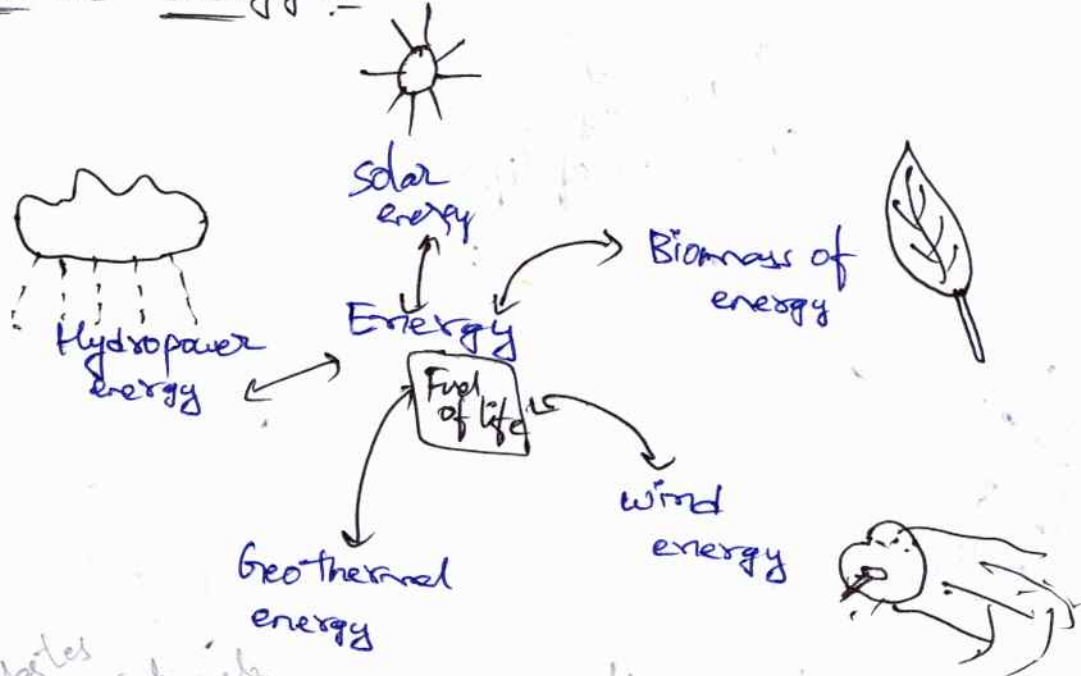 solar
energy
Biomass of
energy
Hydropower
energy
Energy
Fuel
of life
wind
energy
Geothermal
energy